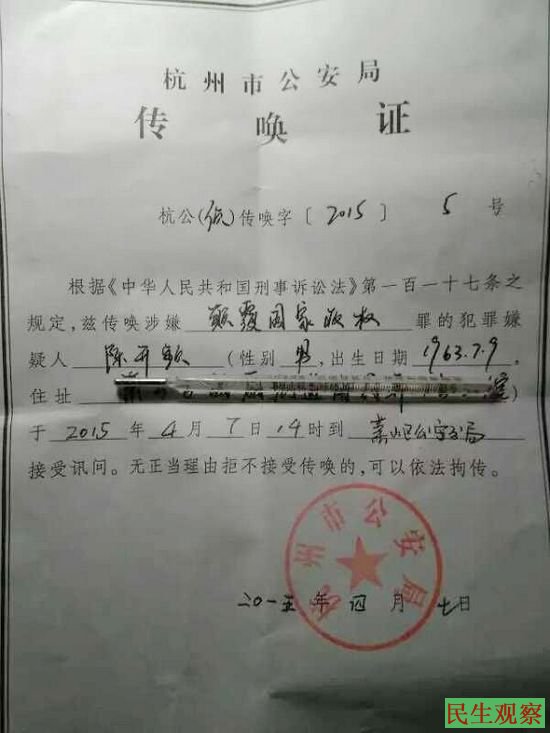 杭州市公安局
传唤证
杭公( )传唤字〔2015〕5号
根据《中华人民共和国刑事诉讼法》第一百一十七条之
规定，兹传唤涉嫌 颠覆国家政权 罪的犯罪嫌
疑人 陈开频 (性别 男，出生日期 1963.7.9，
住址
于 2015 年 4 月 7 日 14 时到 萧山区公安分局
接受讯问。无正当理由拒不接受传唤的，可以依法拘传。
杭州市公安局
二〇一五年四月七日
民生观察